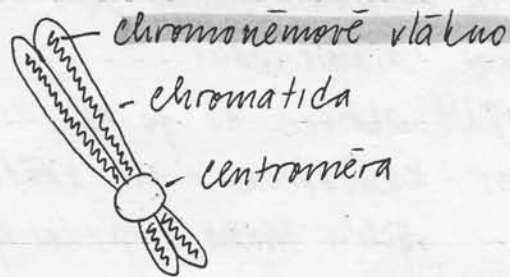 chromonémové vlákno
chromatida
centroméra